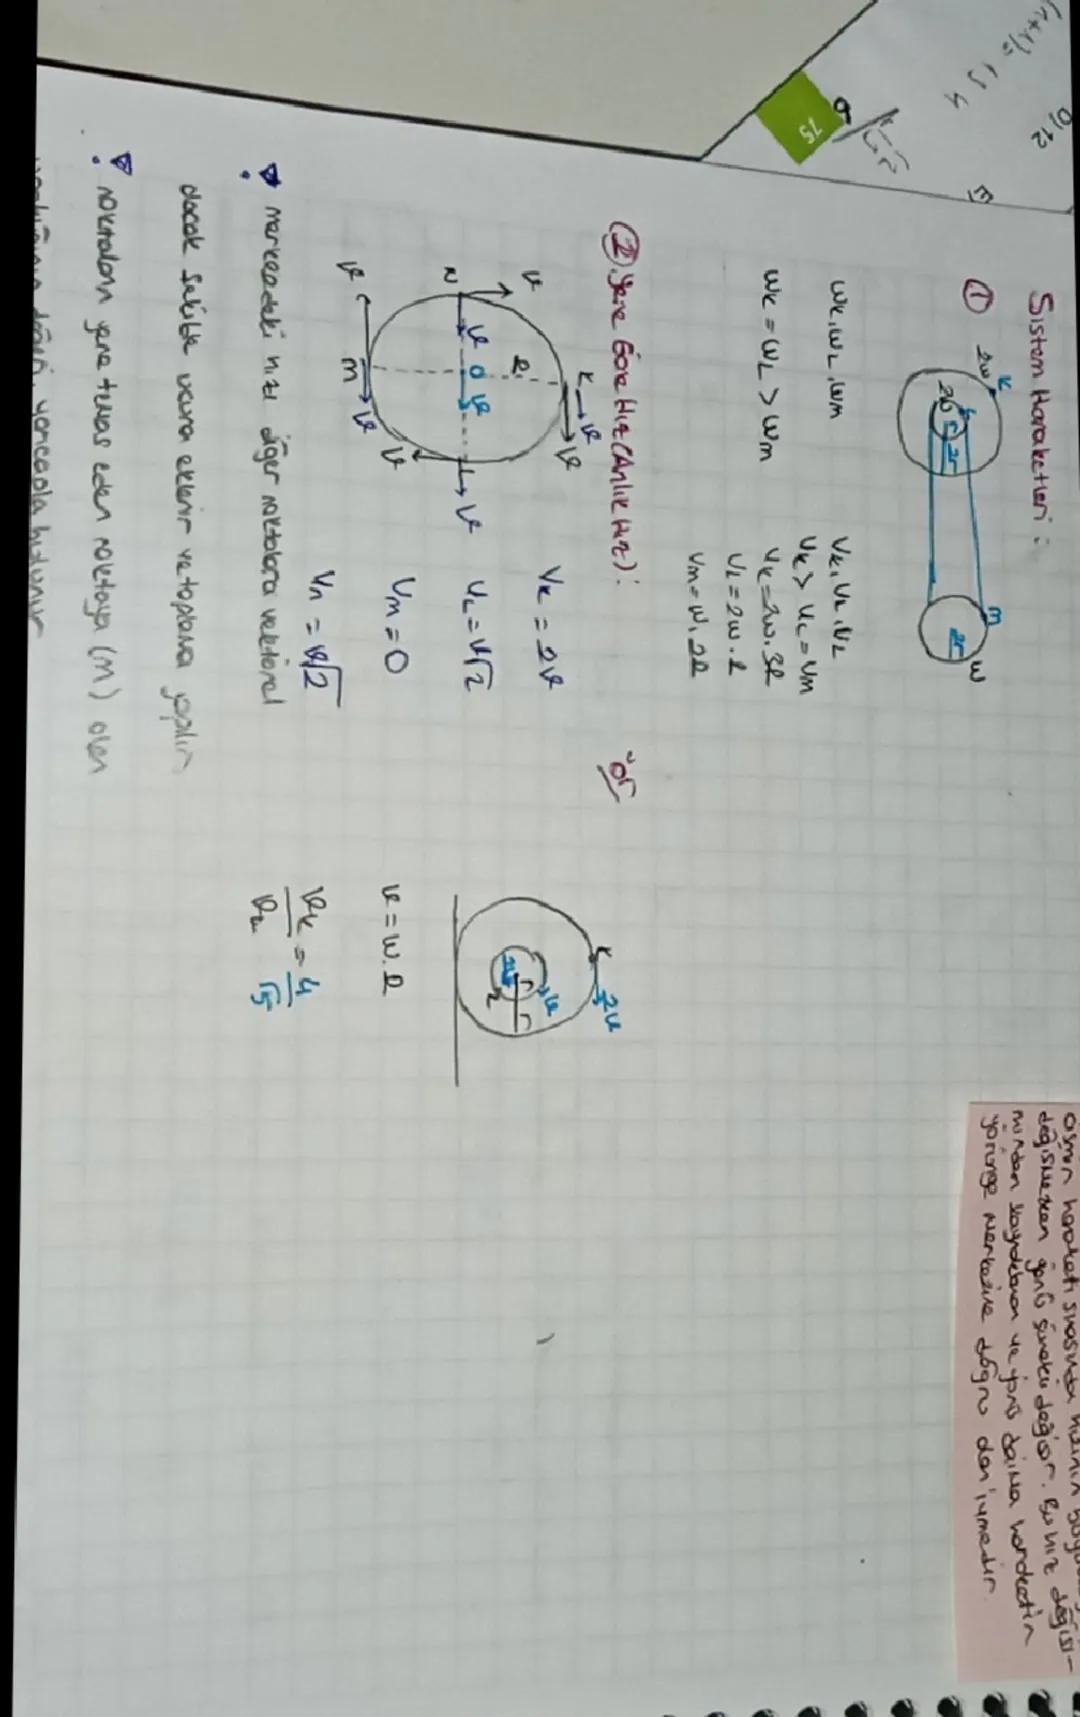 Sistem Hareketleri:
①
K
2w
L
2w
r
2r
M
2r
w
WK, WL, WM
WK = WL > WM
VK, VL, VL
VK > VL = VM
VK = 2w. 3R
VL = 2w. R
VM = W. 2R
② Yere Göre Hız (Anlık Hız):
K
V
V
V
N
V
O
V
R
L
V
V
M
V
V
VK = 2V
VL = V√2
VM = 0
Vn = V√2
merkezdeki hızı diğer noktalara vektörel
olacak şekilde vara eklenir ve toplama yapılır
noktaların yere temas eden noktaya (M) olan
ör
K
2V
r
r
L
V = W. R
VK/VL = 4/√5
değişmezken yönü sürekli değişir. Bu hız değişi-
minden kaynaklanan ve yönü daima hareketin
yörünge merkezine doğru olan ivmedir.
75
0,12